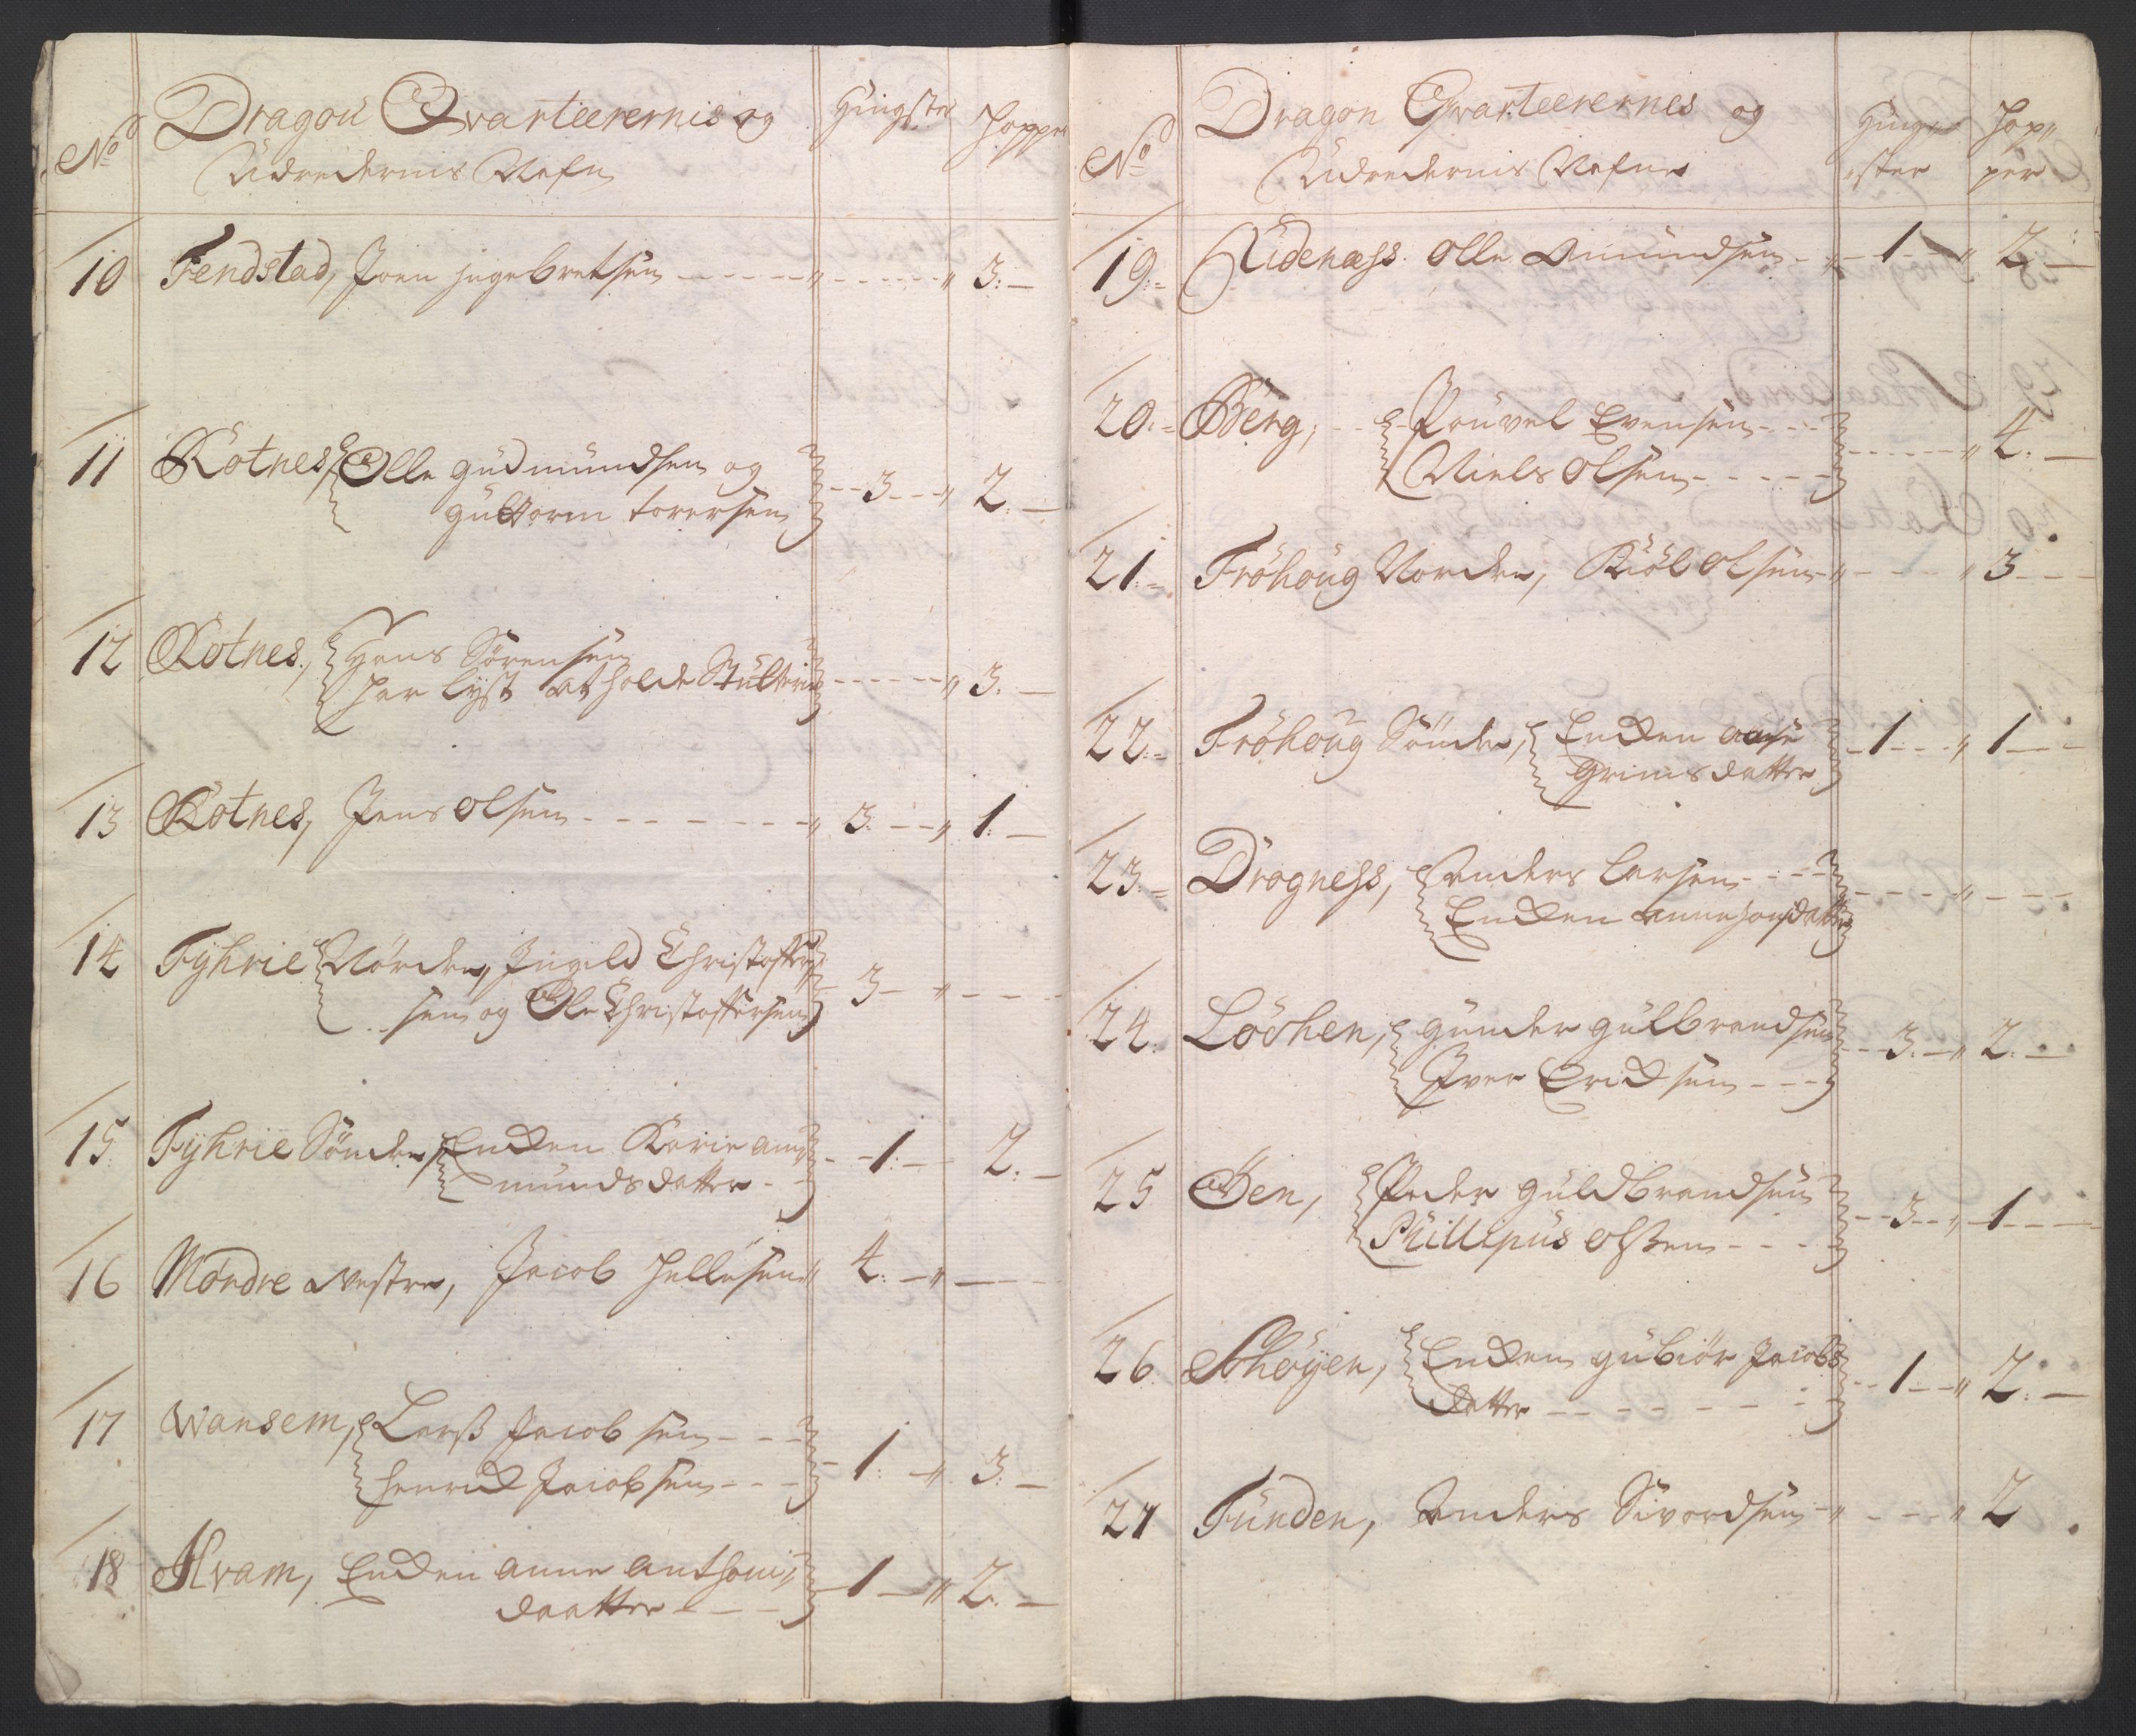 No
Dragon Qvarteerernis og
Hingster
Hopper
Udredernis Nafn
10 Fendstad, Joen Ingebretsen - - - - - " - - - - - " 3: -
11 Kotnes, Olle gudmundsen og
guttorm torersen - - 3 - - " 2: -
12 Kotnes, Hans Sörensen
har lyst at holde Stutteri - - - - - " 3. -
13 Kotnes, Jens Olsen - - - - - - - - " 3: - - " 1: -
14 Fÿhrie Nörden, Ingeld Christoffer
sen og Ole Christoffersen 3 - " - - -
15 Fÿhrie Sönden, Encken Karie am
mundsdatter - - - 1: - 2: -
16 Mondre Westre, Jacob Hellesen " 4: - " - - -
17 Wansem, Larss Jacobsen - - -
Henrick Jacobsen - - - - 1: - " 3: -
18 Hvam, Encken anne anthoni
daatter - - - - 1 - " 2: -
No
Dragon Qvarteerernes og
Hing
Hop"
Udredernis Nafne
ster
per
19:- Udenæss. Olle Amundsen - " - 1 - - " 2: -
20:- Berg, - - Pouvel Evensen - - -
Niels Olsen - - - - - - - - - - " 4: -
21:- Fröhoug Norden, Kiöl Olsen " - - - " 3 - -
22:- Fröhoug Sönden, Encken aase
Grimsdatter - 1 - - - " 1 - - -
23:- Drogness, Anders Larsen - - - -
Encken anne Hansdatter - - - - " - - -
24: Löchen, gunder gulbrandsen
Iver Ericksen - - - - - - 3: - " 2: -
25 Öen, Peder guldbrandsen
Phillipus Olssen - - - - - - 3 - - " 1 - - -
26 Schöÿen, Encken gubiör Jacobs
datter - - - - - - - - - 1 - - " 2: -
27 Funden, Anders Sivordsen - " - - - " 2